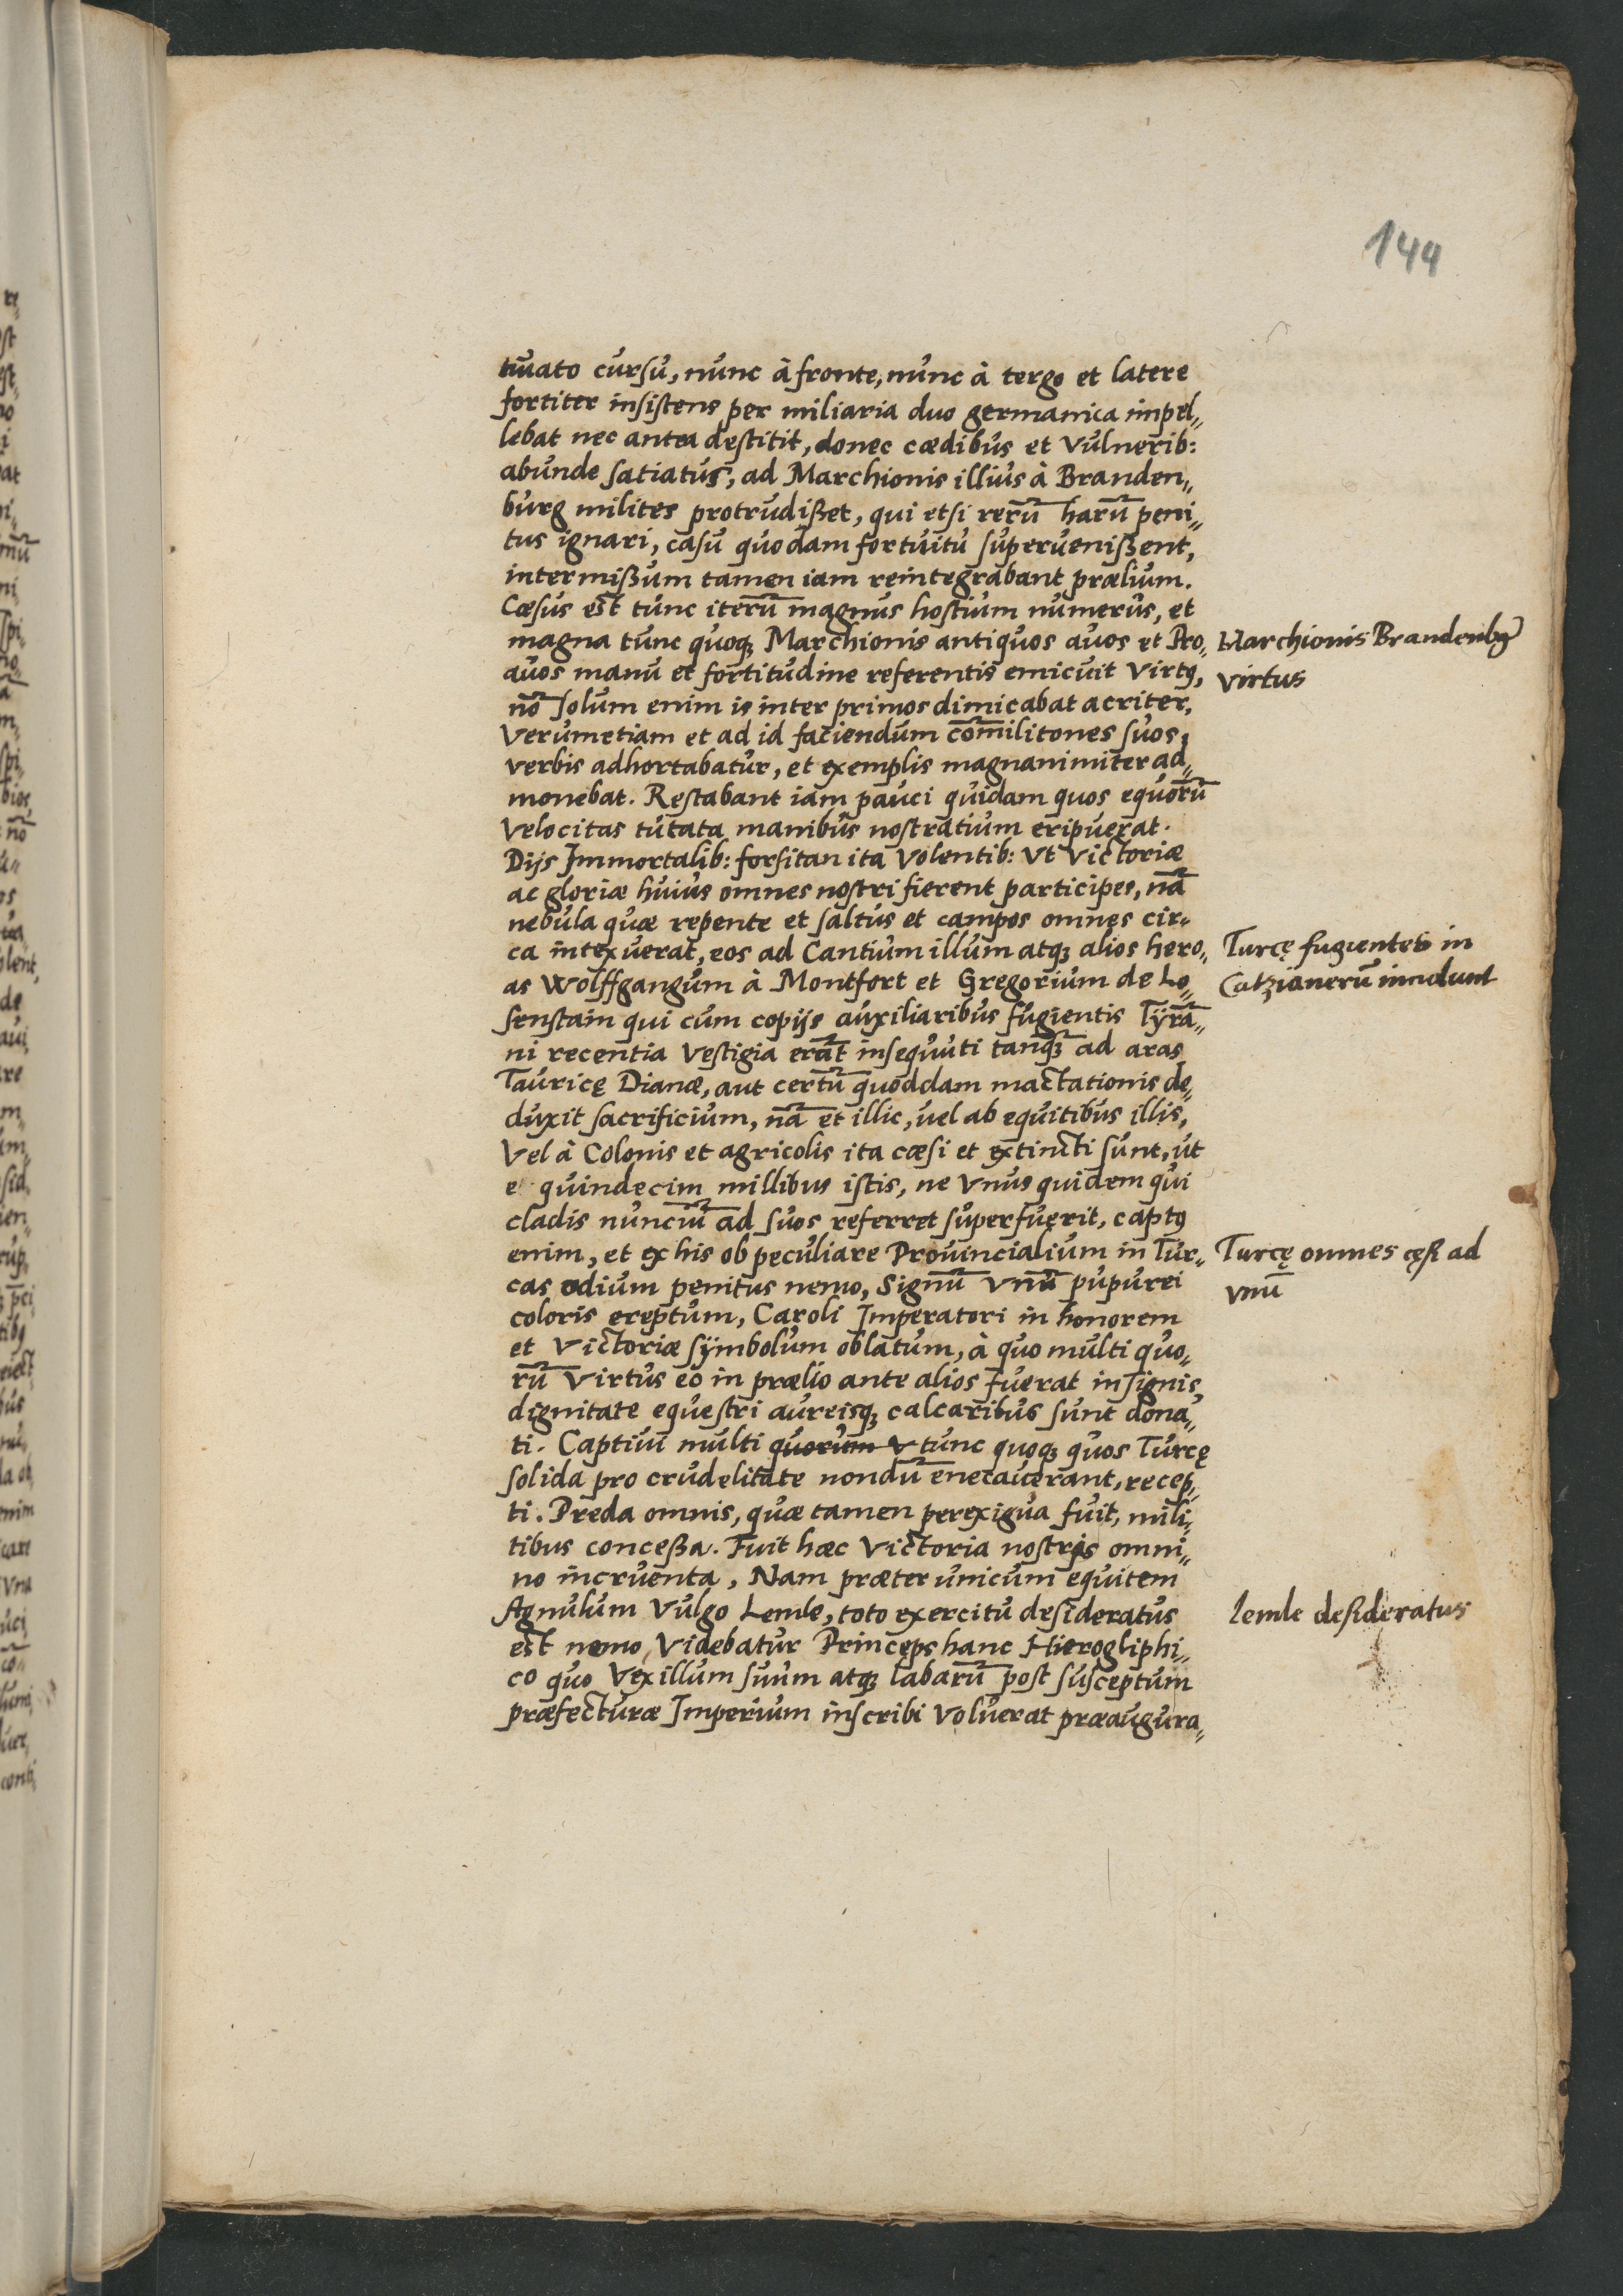 144
tuato cursu, nunc à fronte, nunc à tergo et latere
fortiter insistens per miliaria duo germanica impel„
lebat nec antea destitit, donec cædibus et Vulnerib:
abunde satiatus, ad Marchionis illius à Branden„
burg milites protrudißet, qui etsi rerū harū peni„
tus ignari, casu quodam fortuitu superuenißent,
intermißum tamen iam reintegrabant prælium.
Cæsus est tunc iterū magnus hostium numerus, et
magna tunc quoqꝫ Marchionis antiquos auos et Pro„
auos manu et fortitudine referentis emicuit Virtꝰ,
nō solum enim is inter primos dimicabat acriter,
Verumetiam et ad id faciendum com̄ilitones suos,
verbis adhortabatur, et exemplis magnanimiter ad„
monebat. Restabant iam pauci quidam quos equorū
Velocitas tutata manibus nostratium eripuerat.
Dijs Immortalib: forsitan ita Volentib: Vt Victoriæ
ac gloriæ huius omnes nostri fierent participes, nā
nebula quæ repente et saltus et campos omnes cir„
ca intexuerat, eos ad Cantium illum atqꝫ alios hero„
as Wolffgangum à Montfort et Gregorium de Lo„
senstain qui cum copijs auxiliaribus fugientis Tÿrā„
ni recentia Vestigia erāt insequuti tanqꝫ̄ ad aras
Tauricę Dianæ, aut certū quoddam mactationis de„
duxit sacrificium, nā et illic, uel ab equitibus illis,
Vel à Colonis et agricolis ita cæsi et extincti sunt, ut
e quindecim millibus istis, ne Vnus quidem qui
cladis nunciū ad suos referret superfuerit, captꝰ
enim, et ex his ob peculiare Prouincialium in Tur„
cas odium penitus nemo, Signū Vnū pupurei
coloris ereptum, Caroli Imperatori in honorem
et Victoriæ sÿmbolum oblatum, à quo multi quo„
rū Virtus eo in prælio ante alios fuerat insignis,
dignitate equestri aureisqꝫ calcaribus sunt dona„
ti. Captiui multi quorum V tunc quoqꝫ quos Turcę
solida pro crudelitate nondū enecauerant, recep„
ti. Preda omnis, quæ tamen perexigua fuit, mili„
tibus conceßa. Fuit hæc Victoria nostris omni„
no incruenta, Nam præter unicum equitem
Agnulum Vulgo Lemle, toto exercitu desideratus
est nemo, Videbatur Princeps hanc Hierogliphi„
co quo Vexillum suum atqꝫ labarū post susceptum
præfecturæ Imperium inscribi Voluerat præaugura„
Marchionis Brandenbg
virtus
Turcę fugientes in
Catzianerū incidunt
Turcę omnes cęsi ad
vnū
lemle desideratus